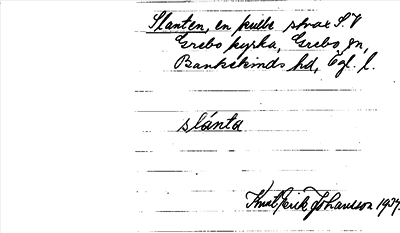 Slanten, en kulle strax S.V
Grebo kyrka, Grebo sn,
Bankekinds hd, Ögl. l.
slánta
Knut Erik Johansson 1937.